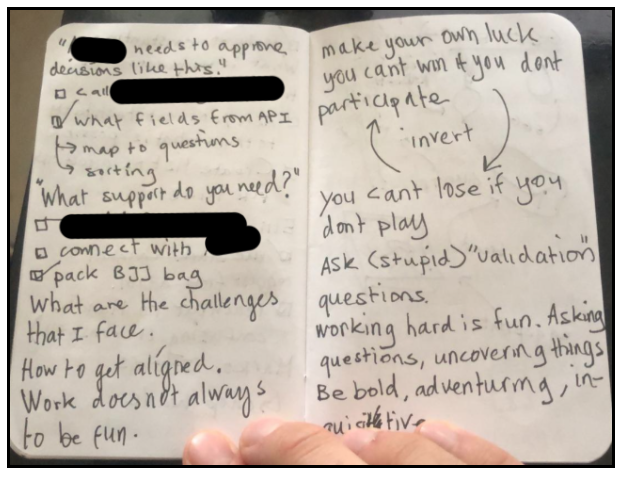 " needs to approve
decisions like this."
☐ call
☑ what fields from API
↳ map to questions
↳ sorting
"What support do you need?"
☐
☐ connect with
☑ pack BJJ bag
What are the challenges
that I face.
How to get aligned.
Work does not always
to be fun.
make your own luck
you cant win if you dont
participate
invert
you cant lose if you
dont play
Ask (stupid) "validation"
questions.
working hard is fun. Asking
questions, uncovering things
Be bold, adventuring, in-
quisitive